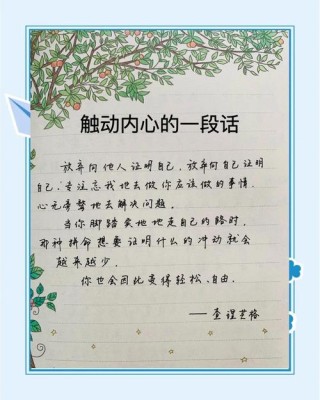 触动内心的一段话
放弃向他人证明自己，放弃向自己证明
自己，专注忘我地去做你应该做的事情，
心无牵挂地去解决问题。
当你脚踏实地地走自己的路时，
那种拼命想要证明什么的冲动就会
越来越少。
你也会因此变得轻松、自由。
——查理芒格